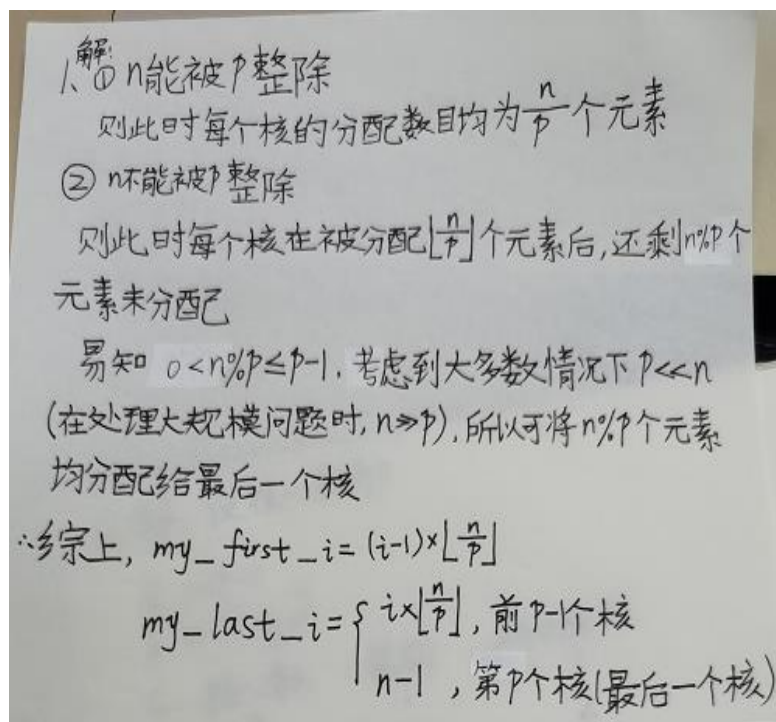 1、解：① n能被p整除
则此时每个核的分配数目均为n/p个元素
② n不能被p整除
则此时每个核在被分配⌊n/p⌋个元素后,还剩n%p个
元素未分配
易知 0<n%p≤p-1,考虑到大多数情况下p<<n
(在处理大规模问题时,n>>p),所以可将n%p个元素
均分配给最后一个核
∴综上, my_first_i=(i-1)×⌊n/p⌋
my_last_i={ i×⌊n/p⌋,前p-1个核
n-1 ,第p个核(最后一个核)